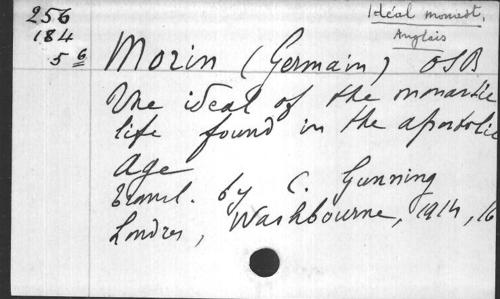 256
184
5 6
Idéal monast.
Anglais
Morin (Germain) OSB
The ideal of the monastic
life found in the apostolic
age
transl. by C. Gunning
Londres, Washbourne, 1914, 16